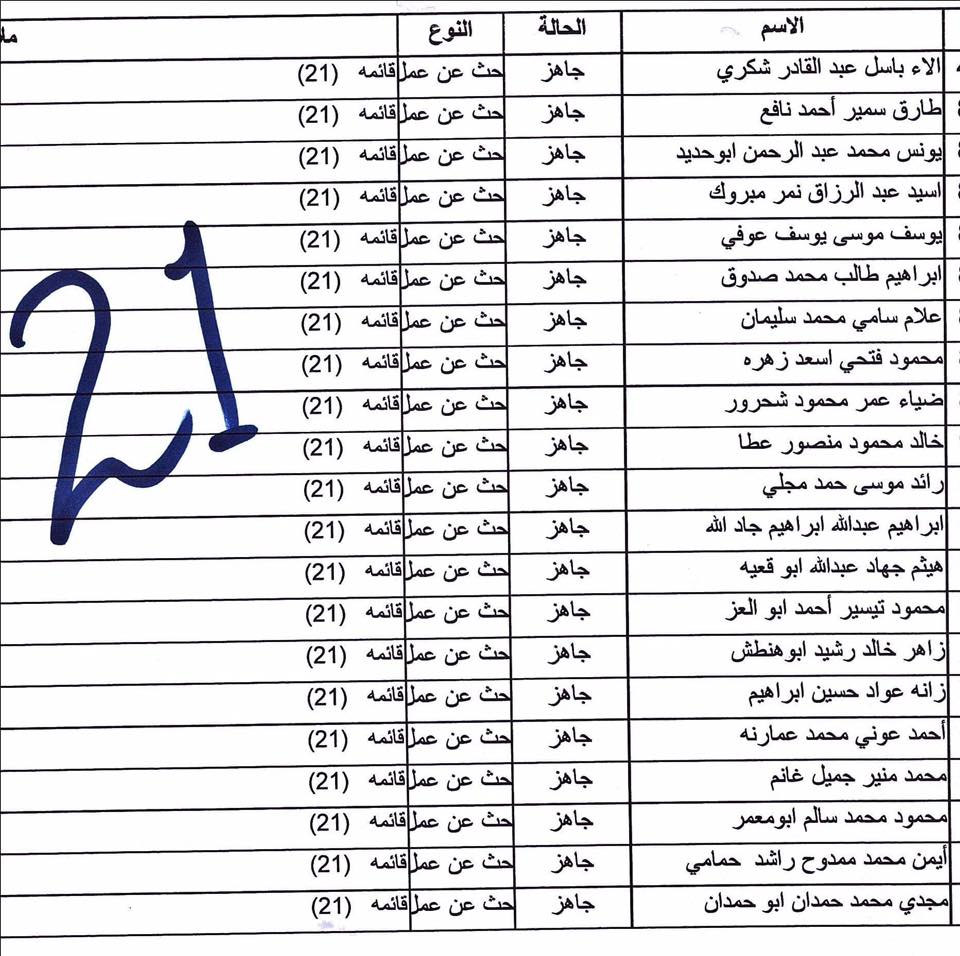 الاسم الحالة النوع
الاء باسل عبد القادر شكري جاهز حث عن عمل قائمه (21)
طارق سمير أحمد نافع جاهز حث عن عمل قائمه (21)
يونس محمد عبد الرحمن ابوحديد جاهز حث عن عمل قائمه (21)
اسيد عبد الرزاق نمر مبروك جاهز حث عن عمل قائمه (21)
يوسف موسى يوسف عوفي جاهز حث عن عمل قائمه (21)
ابراهيم طالب محمد صدوق جاهز حث عن عمل قائمه (21)
علام سامي محمد سليمان جاهز حث عن عمل قائمه (21)
محمود فتحي اسعد زهره جاهز حث عن عمل قائمه (21)
ضياء عمر محمود شحرور جاهز حث عن عمل قائمه (21)
خالد محمود منصور عطا جاهز حث عن عمل قائمه (21)
رائد موسى حمد مجلي جاهز حث عن عمل قائمه (21)
ابراهيم عبدالله ابراهيم جاد الله جاهز حث عن عمل قائمه (21)
هيثم جهاد عبدالله ابو قعيه جاهز حث عن عمل قائمه (21)
محمود تيسير أحمد ابو العز جاهز حث عن عمل قائمه (21)
زاهر خالد رشيد ابوهنطش جاهز حث عن عمل قائمه (21)
زانه عواد حسين ابراهيم جاهز حث عن عمل قائمه (21)
أحمد عوني محمد عمارنه جاهز حث عن عمل قائمه (21)
محمد منير جميل غانم جاهز حث عن عمل قائمه (21)
محمود محمد سالم ابومعمر جاهز حث عن عمل قائمه (21)
أيمن محمد ممدوح راشد حمامي جاهز حث عن عمل قائمه (21)
مجدي محمد حمدان ابو حمدان جاهز حث عن عمل قائمه (21)
21